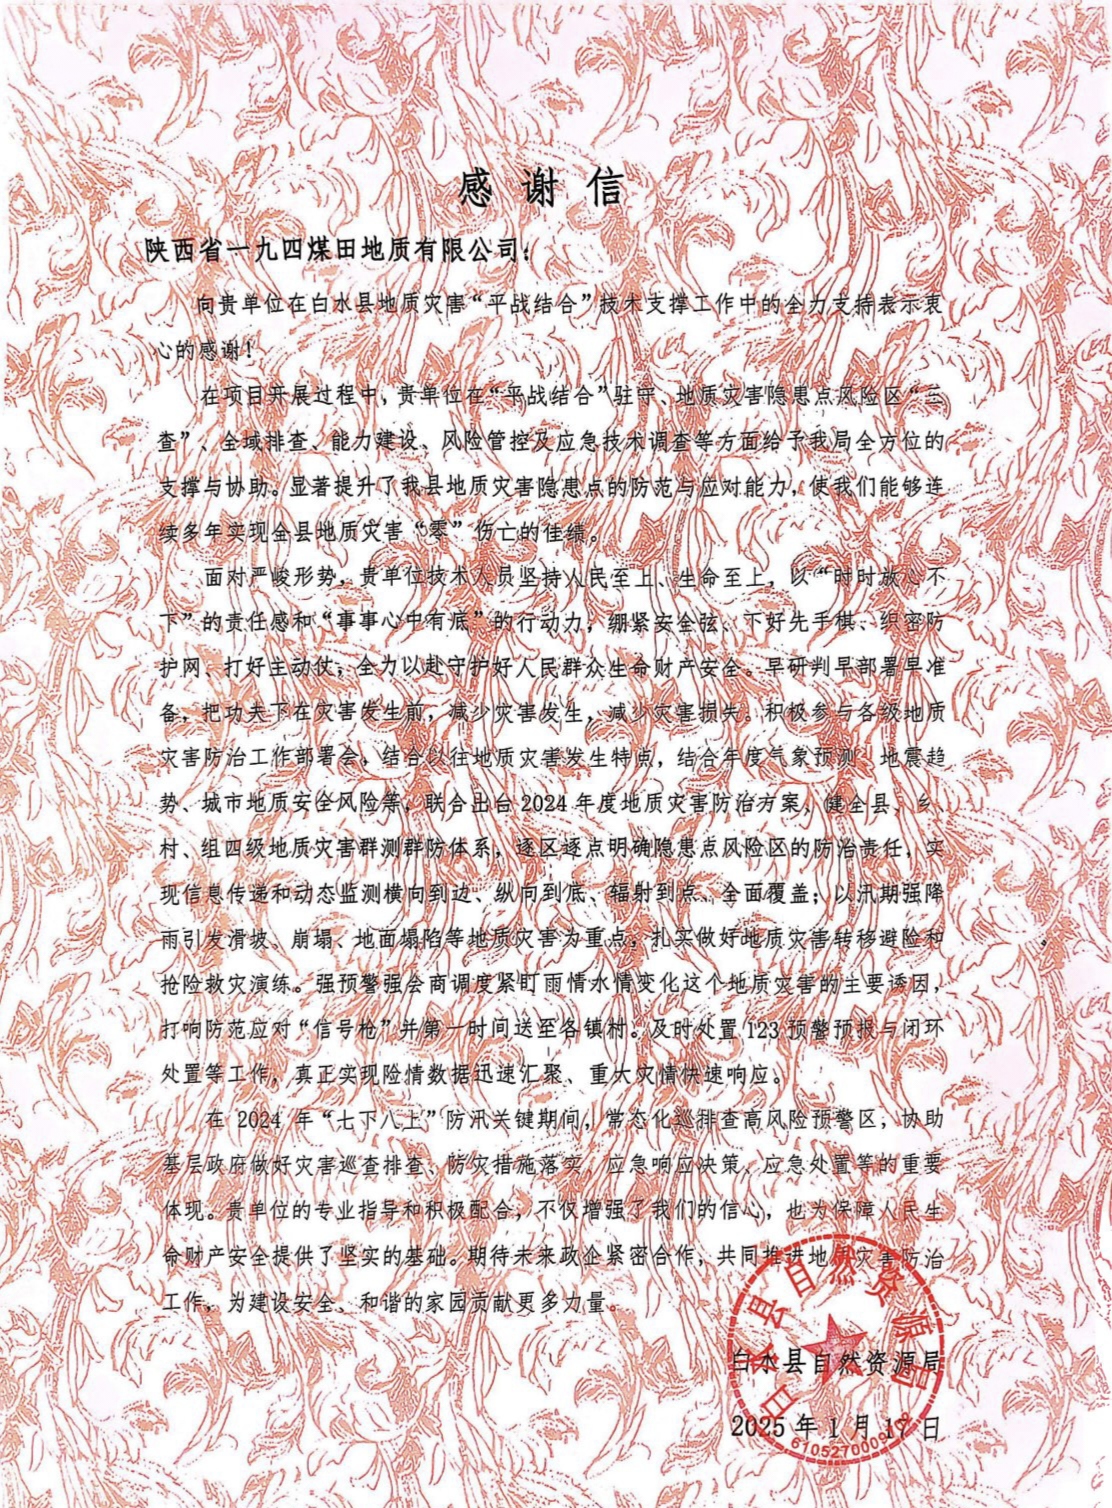 感谢信
陕西省一九四煤田地质有限公司：
向贵单位在白水县地质灾害“平战结合”技术支撑工作中的全力支持表示衷
心的感谢！
在项目开展过程中，贵单位在“平战结合”驻守、地质灾害隐患点风险区“三
查”、全域排查、能力建设、风险管控及应急技术调查等方面给予我局全方位的
支撑与协助。显著提升了我县地质灾害隐患点的防范与应对能力，使我们能够连
续多年实现全县地质灾害“零”伤亡的佳绩。
面对严峻形势，贵单位技术人员坚持人民至上、生命至上，以“时时放心不
下”的责任感和“事事心中有底”的行动力，绷紧安全弦、下好先手棋、织密防
护网、打好主动仗，全力以赴守护好人民群众生命财产安全。早研判早部署早准
备，把功夫下在灾害发生前，减少灾害发生，减少灾害损失。积极参与各级地质
灾害防治工作部署会，结合以往地质灾害发生特点，结合年度气象预测、地震趋
势、城市地质安全风险等，联合出台2024年度地质灾害防治方案，健全县、乡、
村、组四级地质灾害群测群防体系，逐区逐点明确隐患点风险区的防治责任，实
现信息传递和动态监测横向到边、纵向到底、辐射到点、全面覆盖；以汛期强降
雨引发滑坡、崩塌、地面塌陷等地质灾害为重点，扎实做好地质灾害转移避险和
抢险救灾演练。强预警强会商调度紧盯雨情水情变化这个地质灾害的主要诱因，
打响防范应对“信号枪”并第一时间送至各镇村。及时处置123预警预报与闭环
处置等工作，真正实现险情数据迅速汇聚、重大灾情快速响应。
在2024年“七下八上”防汛关键期间，常态化巡排查高风险预警区，协助
基层政府做好灾害巡查排查、防灾措施落实、应急响应决策、应急处置等的重要
体现。贵单位的专业指导和积极配合，不仅增强了我们的信心，也为保障人民生
命财产安全提供了坚实的基础。期待未来政企紧密合作，共同推进地质灾害防治
工作，为建设安全、和谐的家园贡献更多力量。
白水县自然资源局
白水县自然资源局
2025年1月17日